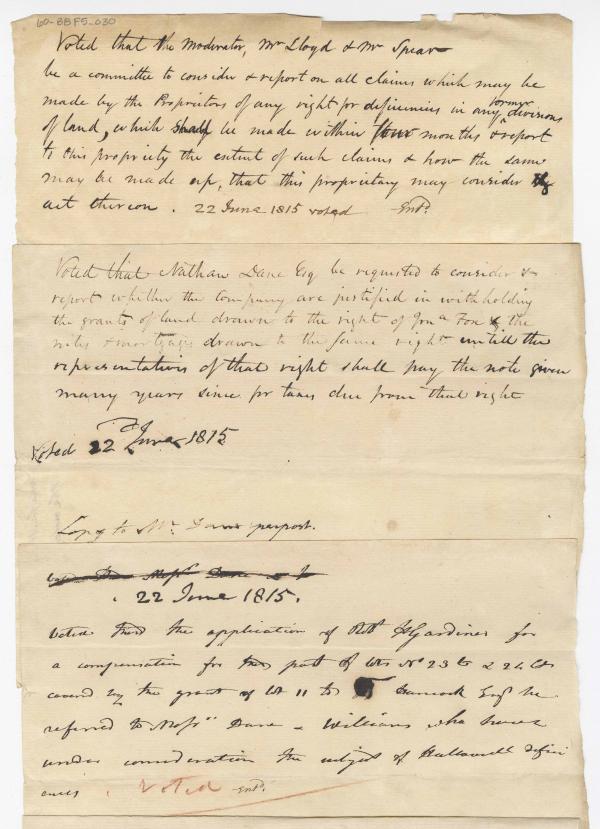 60-BBF5-030
Voted that the moderator, Mr Lloyd & Mr Spear
be a committee to consider & report on all claims which may be
made by the Proprietors of any right for deficiencies in any former divisions
of land, which shall be made within four months & report
to this propriety the extent of such claims & how the same
may be made up, that this proprietary may consider &
act thereon. 22 June 1815 voted Entd.
Voted that Nathan Dane Esq be requested to consider &
report whether the company are justified in withholding
the grants of land drawn to the right of Jona Fox & the
notes & mortgages drawn to the same right untill the
representatives of that right shall pay the note given
many years since for taxes due from that right
Voted 22d June 1815
Copy to Mr. Dane per post.
22 June 1815.
Voted that the application of Robt H Gardiner for
a compensation for the part of lots No 23 & 24
covered by the grant of lot 11 to Hancock Esqr be
referred to Messrs Dane & Williams who have
under consideration the subject of Hallowell defici
encies. Voted Entd.